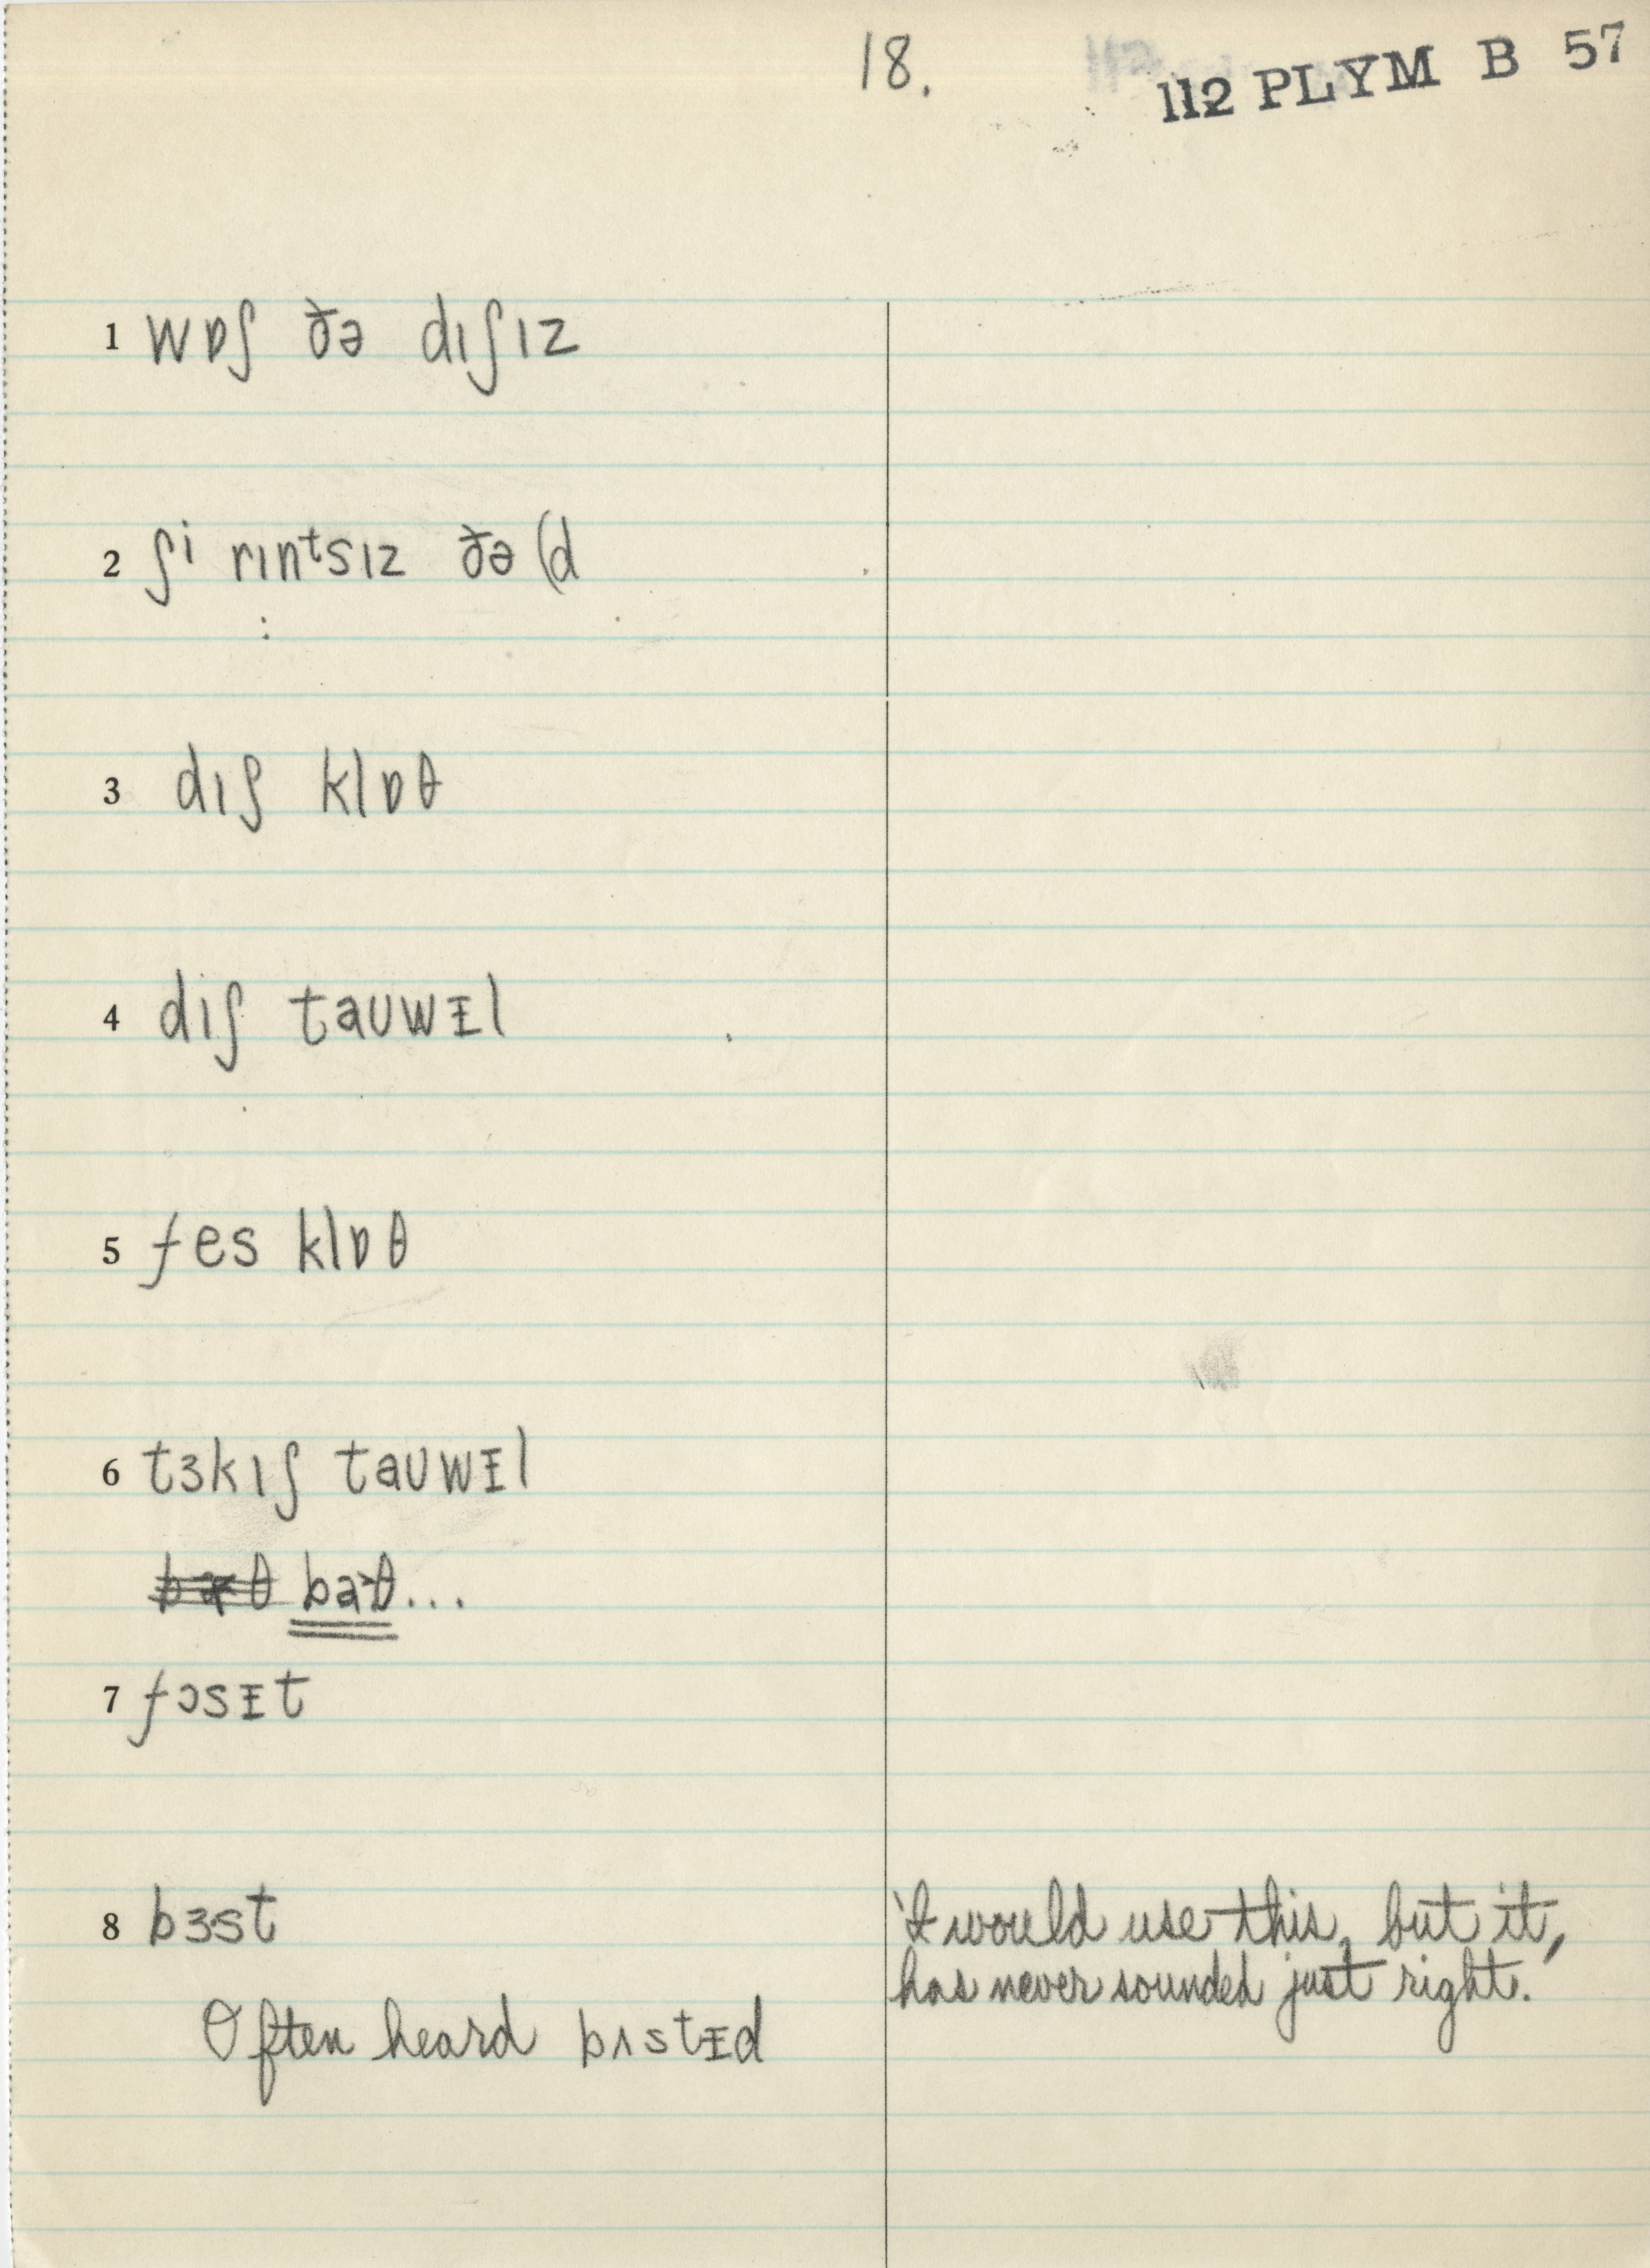 18.
112 PLYM B 57
1 wɒʃ ðə dɪʃɪz
2 ʃi rɪnᵗsɪz ðə (d
3 dɪʃ klɒθ
4 dɪʃ taʊwᵻl
5 fes klɒθ
6 tɜkɪʃ taʊwᵻl
ba˃θ...
7 fɔsᵻt
8 bɜst
'I would use this, but it,
has never sounded just right.'
Often heard bʌstᵻd